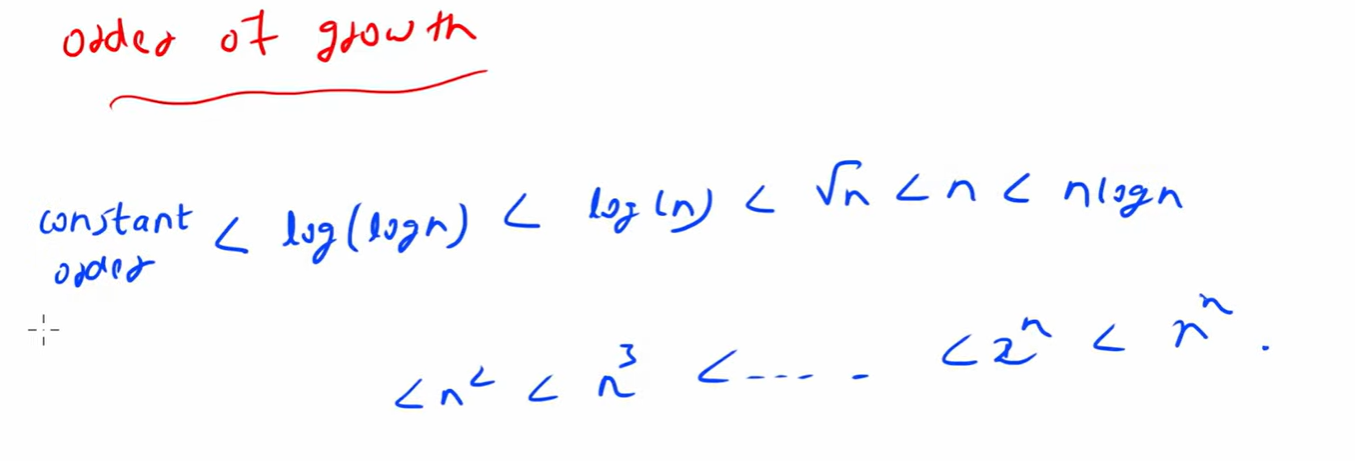 order of growth
constant order < log(logn) < log(n) < √n < n < nlogn
< n² < n³ < ..... < 2ⁿ < nⁿ.